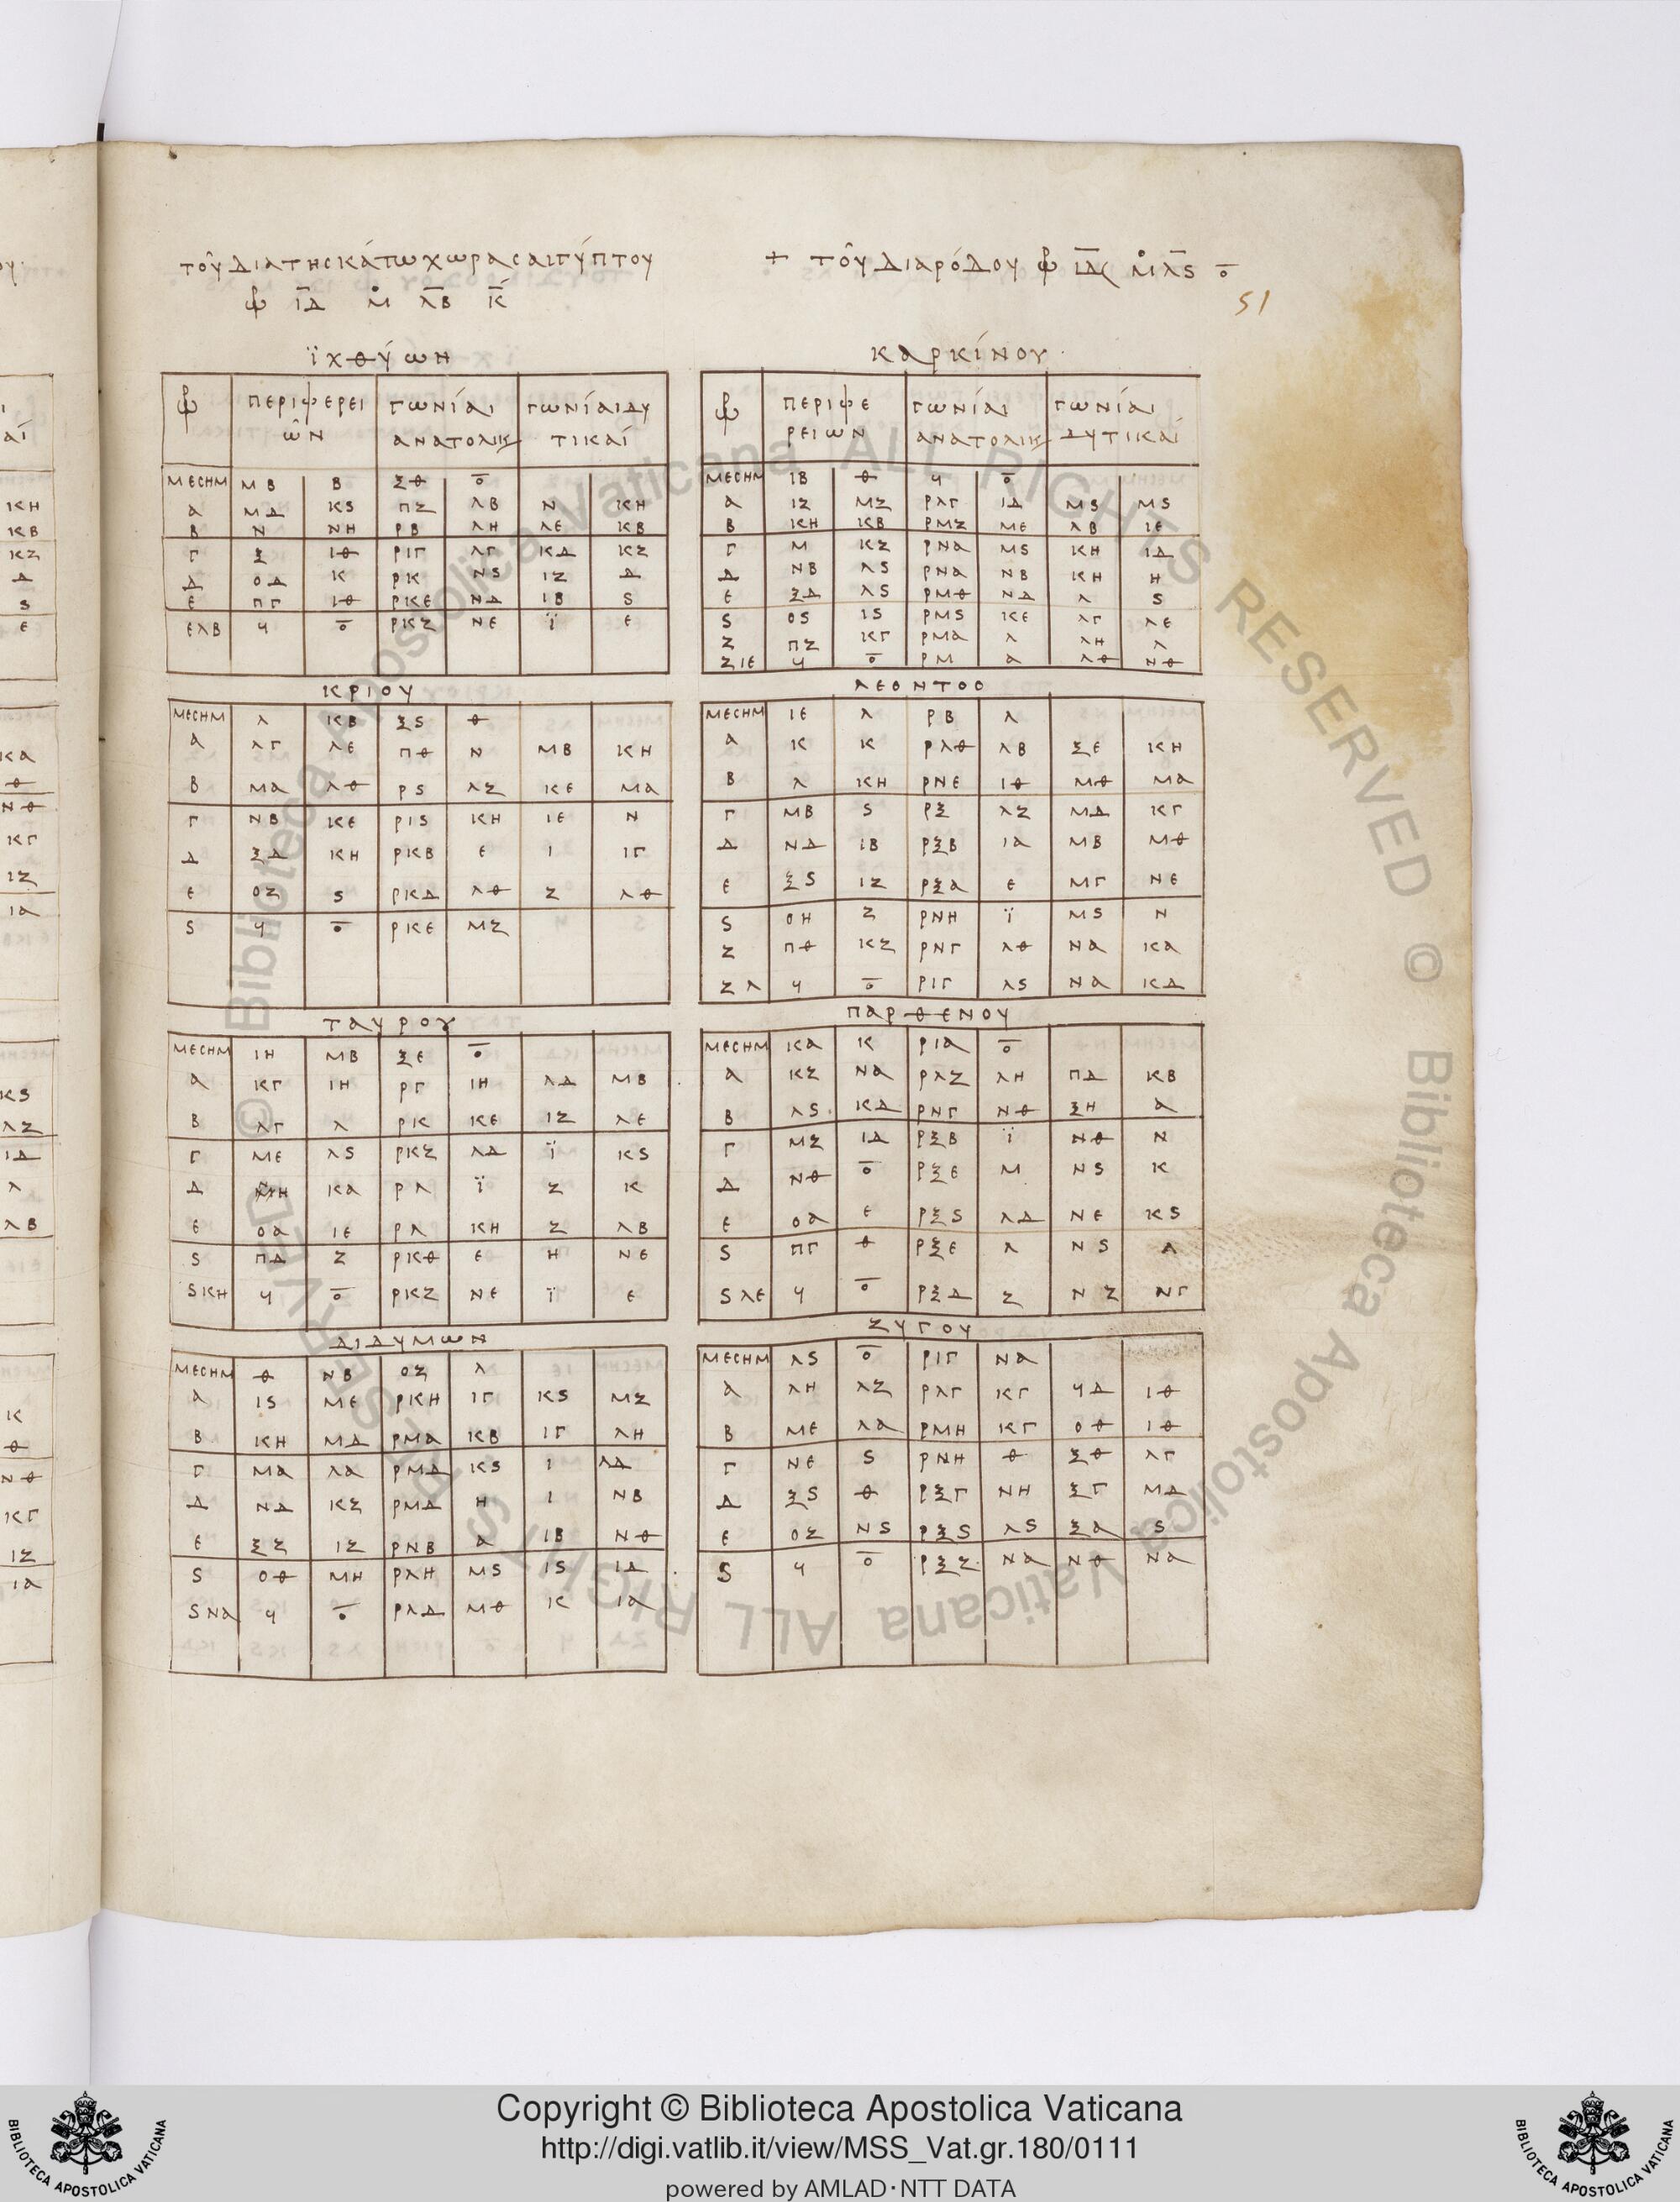 τοῦ διὰ τῆς κάτω χώρας αἰγύπτου
ιδ Μ λβ κ
ϊχθύων
περιφερει γωνίαι γωνίαι δυ
ῶν ανατολικ τικαί
ΜΕCΗΜ ΜΒ Β ΞΘ ο
Α ΜΔ ΚS ΠΖ ΛΒ Ν ΚΗ
Β Ν ΝΗ ΡΒ ΛΗ ΛΕ ΚΒ
Γ Ξ ΙΘ ΡΙΓ ΛΓ ΚΔ ΚΖ
Δ ΟΔ Κ ΡΚ ΝS ΙΖ Δ
Ε ΠΓ ΙΘ ΡΚΕ ΝΔ ΙΒ S
ΕΛΒ Ϥ ο ΡΚΖ ΝΕ Ϊ Ε
ΚΡΙΟΥ
ΜΕCΗΜ Λ ΚΒ ΞS Θ
Α ΛΓ ΛΕ ΠΘ Ν ΜΒ ΚΗ
Β ΜΑ ΛΘ ΡS ΛΖ ΚΕ ΜΑ
Γ ΝΒ ΚΕ ΡΙS ΚΗ ΙΕ Ν
Δ ΞΔ ΚΗ ΡΚΒ Ε Ι ΙΓ
Ε ΟΖ S ΡΚΔ ΛΘ Ζ ΛΘ
S Ϥ ο ΡΚΕ ΜΖ
ΤΑΥΡΟΥ
ΜΕCΗΜ ΙΗ ΜΒ ΞΕ ο
Α ΚΓ ΙΗ ΡΓ ΙΗ ΛΔ ΜΒ
Β ΛΓ Λ ΡΚ ΚΕ ΙΖ ΛΕ
Γ ΜΕ ΛS ΡΚΖ ΛΔ Ϊ ΚS
Δ ΝΗ ΚΑ ΡΛ Ϊ Ζ Κ
Ε ΟΑ ΙΕ ΡΛ ΚΗ Ζ ΛΒ
S ΠΔ Ζ ΡΚΘ Ε Η ΝΕ
SΚΗ Ϥ ο ΡΚΖ ΝΕ Ϊ Ε
ΔΙΔΥΜΩΝ
ΜΕCΗΜ Θ ΝΒ ΟΖ Λ
Α ΙS ΜΕ ΡΚΗ ΙΓ ΚS ΜΖ
Β ΚΗ ΜΔ ΡΜΑ ΚΒ ΙΓ ΛΗ
Γ ΜΑ ΛΑ ΡΜΔ ΚS Ι ΛΔ
Δ ΝΔ ΚΖ ΡΜΔ Η Ι ΝΒ
Ε ΞΖ ΙΖ ΡΝΒ Α ΙΒ ΝΘ
S ΟΘ ΜΗ ΡΛΗ ΜS ΙS ΙΔ
SΝΑ Ϥ ο ΡΛΔ ΜΘ Κ ΙΑ
+ τοῦ διὰ ῥόδου ιδ Μ λS ο
51
ΚΑΡΚΙΝΟΥ
περιφε γωνίαι γωνίαι
ρειων ανατολικ δυτικαί
ΜΕCΗΜ ΙΒ Θ Ϥ ο
Α ΙΖ ΜΖ ΡΛΓ ΙΔ ΜS ΜS
Β ΚΗ ΚΒ ΡΜΖ ΜΕ ΛΒ ΙΕ
Γ Μ ΚΖ ΡΝΑ ΜS ΚΗ ΙΔ
Δ ΝΒ ΛS ΡΝΑ ΝΒ ΚΗ Η
Ε ΞΔ ΛS ΡΜΘ ΝΔ Λ S
S ΟS ΙS ΡΜS ΚΕ ΛΓ ΛΕ
Ζ ΠΖ ΚΓ ΡΜΑ Λ ΛΗ Λ
ΖΙΕ Ϥ ο ΡΜ Α ΛΘ ΝΘ
ΛΕΟΝΤΟC
ΜΕCΗΜ ΙΕ Λ ΡΒ Λ
Α Κ Κ ΡΛΘ ΛΒ ΞΕ ΚΗ
Β Λ ΚΗ ΡΝΕ ΙΘ ΜΘ ΜΑ
Γ ΜΒ S ΡΞ ΛΖ ΜΔ ΚΓ
Δ ΝΔ ΙΒ ΡΞΒ ΙΑ ΜΒ ΜΘ
Ε ΞS ΙΖ ΡΞΑ Ε ΜΓ ΝΕ
S ΟΗ Ζ ΡΝΗ Ϊ ΜS Ν
Ζ ΠΘ ΚΖ ΡΝΓ ΛΘ ΝΑ ΚΑ
ΖΛ Ϥ ο ΡΙΓ ΛS ΝΑ ΚΔ
ΠΑΡΘΕΝΟΥ
ΜΕCΗΜ ΚΑ Κ ΡΙΑ ο
Α ΚΖ ΝΑ ΡΛΖ ΛΗ ΠΔ ΚΒ
Β ΛS ΚΔ ΡΝΓ ΝΘ ΞΗ Α
Γ ΜΖ ΙΔ ΡΞΒ Ϊ ΝΘ Ν
Δ ΝΘ ο ΡΞΕ Μ ΝS Κ
Ε ΟΑ Ε ΡΞS ΛΔ ΝΕ ΚS
S ΠΓ Θ ΡΞΕ Λ ΝS Λ
SΛΕ Ϥ ο ΡΞΔ Ζ ΝΖ ΝΓ
ΖΥΓΟΥ
ΜΕCΗΜ ΛS ο ΡΙΓ ΝΑ
Α ΛΗ ΛΖ ΡΛΓ ΚΓ ϤΔ ΙΘ
Β ΜΕ ΛΑ ΡΜΗ ΚΓ ΟΘ ΙΘ
Γ ΝΕ S ΡΝΗ Θ ΞΘ ΛΓ
Δ ΞS Θ ΡΞΓ ΝΗ ΞΓ ΜΔ
Ε ΟΖ ΝS ΡΞS ΛS ΞΑ S
S Ϥ ο ΡΞΖ ΝΑ ΝΘ ΝΑ
© Biblioteca Apostolica Vaticana ALL RIGHTS RESERVED © Biblioteca Apostolica Vaticana ALL RIGHTS RESERVED
Copyright © Biblioteca Apostolica Vaticana
http://digi.vatlib.it/view/MSS_Vat.gr.180/0111
powered by AMLAD·NTT DATA
BIBLIOTECA APOSTOLICA VATICANA
BIBLIOTECA APOSTOLICA VATICANA